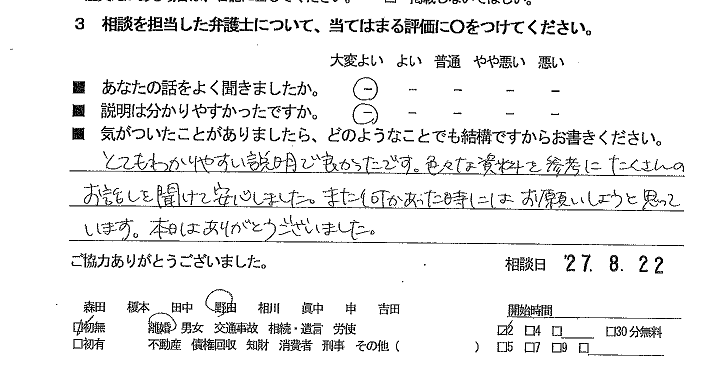 3 相談を担当した弁護士について、当てはまる評価に〇をつけてください。
大変よい よい 普通 やや悪い 悪い
■ あなたの話をよく聞きましたか。 － － － － －
■ 説明は分かりやすかったですか。 － － － － －
■ 気がついたことがありましたら、どのようなことでも結構ですからお書きください。
とてもわかりやすい説明で良かったです。色々な資料を参考にたくさんの
お話しを聞けて安心しました。また何かあった時にはお願いしようと思って
います。本日はありがとうございました。
ご協力ありがとうございました。 相談日 '27. 8. 22
森田 榎本 田中 野田 相川 眞中 申 吉田 開始時間
☑初無 離婚 男女 交通事故 相続・遺言 労使 ☑2 □4 □ □30分無料
□初有 不動産 債権回収 知財 消費者 刑事 その他( ) □5 □7 □9 □